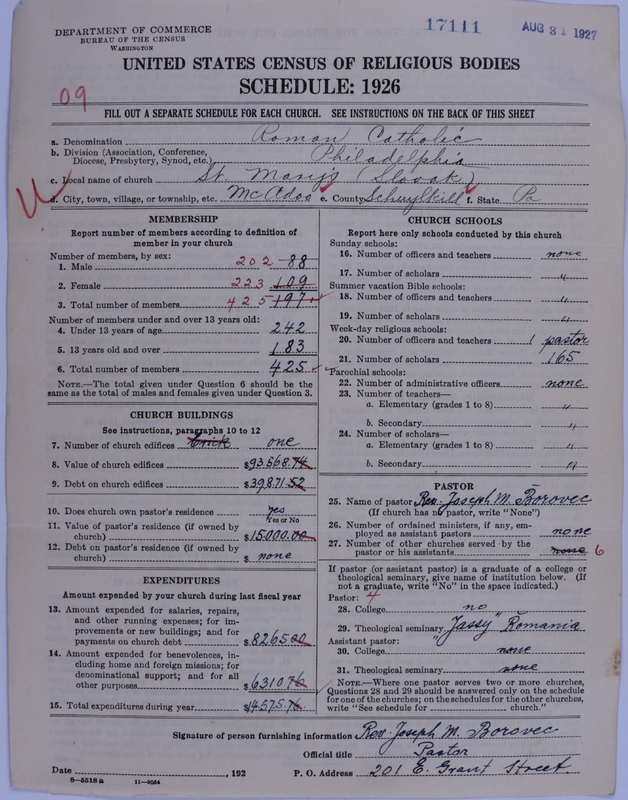 DEPARTMENT OF COMMERCE
BUREAU OF THE CENSUS
WASHINGTON
17111
AUG 31 1927
UNITED STATES CENSUS OF RELIGIOUS BODIES
SCHEDULE: 1926
09
FILL OUT A SEPARATE SCHEDULE FOR EACH CHURCH. SEE INSTRUCTIONS ON THE BACK OF THIS SHEET
a. Denomination Roman Catholic
b. Division (Association, Conference, Diocese, Presbytery, Synod, etc.) Philadelphia
c. Local name of church St. Mary's (Slovak)
d. City, town, village, or township, etc. McAdoo e. County Schuylkill f. State Pa
MEMBERSHIP
Report number of members according to definition of
member in your church
Number of members, by sex:
1. Male 202 88
2. Female 223 109
3. Total number of members 425 197
Number of members under and over 13 years old:
4. Under 13 years of age 242
5. 13 years old and over 183
6. Total number of members 425
NOTE.—The total given under Question 6 should be
same as the total of males and females given under Question 3.
CHURCH BUILDINGS
See instructions, paragraphs 10 to 12
7. Number of church edifices brick one
8. Value of church edifices $93,568.74
9. Debt on church edifices $39,871.52
10. Does church own pastor's residence? yes
Yes or No
11. Value of pastor's residence (if owned by
church) $15,000.00
12. Debt on pastor's residence (if owned by
church) $ none
EXPENDITURES
Amount expended by your church during last fiscal year
13. Amount expended for salaries, repairs,
and other running expenses; for im-
provements or new buildings; and for
payments on church debt $8265.00
14. Amount expended for benevolences, in-
cluding home and foreign missions; for
denominational support; and for all
other purposes $6310.76
15. Total expenditures during year $14575.76
CHURCH SCHOOLS
Report here only schools conducted by this church
Sunday schools:
16. Number of officers and teachers none
17. Number of scholars "
Summer vacation Bible schools:
18. Number of officers and teachers "
19. Number of scholars "
Week-day religious schools:
20. Number of officers and teachers 1 pastor
21. Number of scholars 165
Parochial schools:
22. Number of administrative officers none
23. Number of teachers—
a. Elementary (grades 1 to 8) "
b. Secondary "
24. Number of scholars—
a. Elementary (grades 1 to 8) "
b. Secondary "
PASTOR
25. Name of pastor Rev. Joseph M. Borovec
(If church has no pastor, write "None")
26. Number of ordained ministers, if any, em-
ployed as assistant pastors none
27. Number of other churches served by the
pastor or his assistants none 6
If pastor (or assistant pastor) is a graduate of a college or
theological seminary, give name of institution below. (If
not a graduate, write "No" in the space indicated.)
Pastor: 4
28. College no
29. Theological seminary "Jassy" Romania
Assistant pastor:
30. College none
31. Theological seminary none
NOTE.—Where one pastor serves two or more churches,
Questions 28 and 29 should be answered only on the schedule
for one of the churches; on the schedules for the other churches,
write "See schedule for church."
Signature of person furnishing information Rev. Joseph M. Borovec
Official title Pastor
Date , 192 P. O. Address 201 E. Grant Street.
8—5518a 11—9034